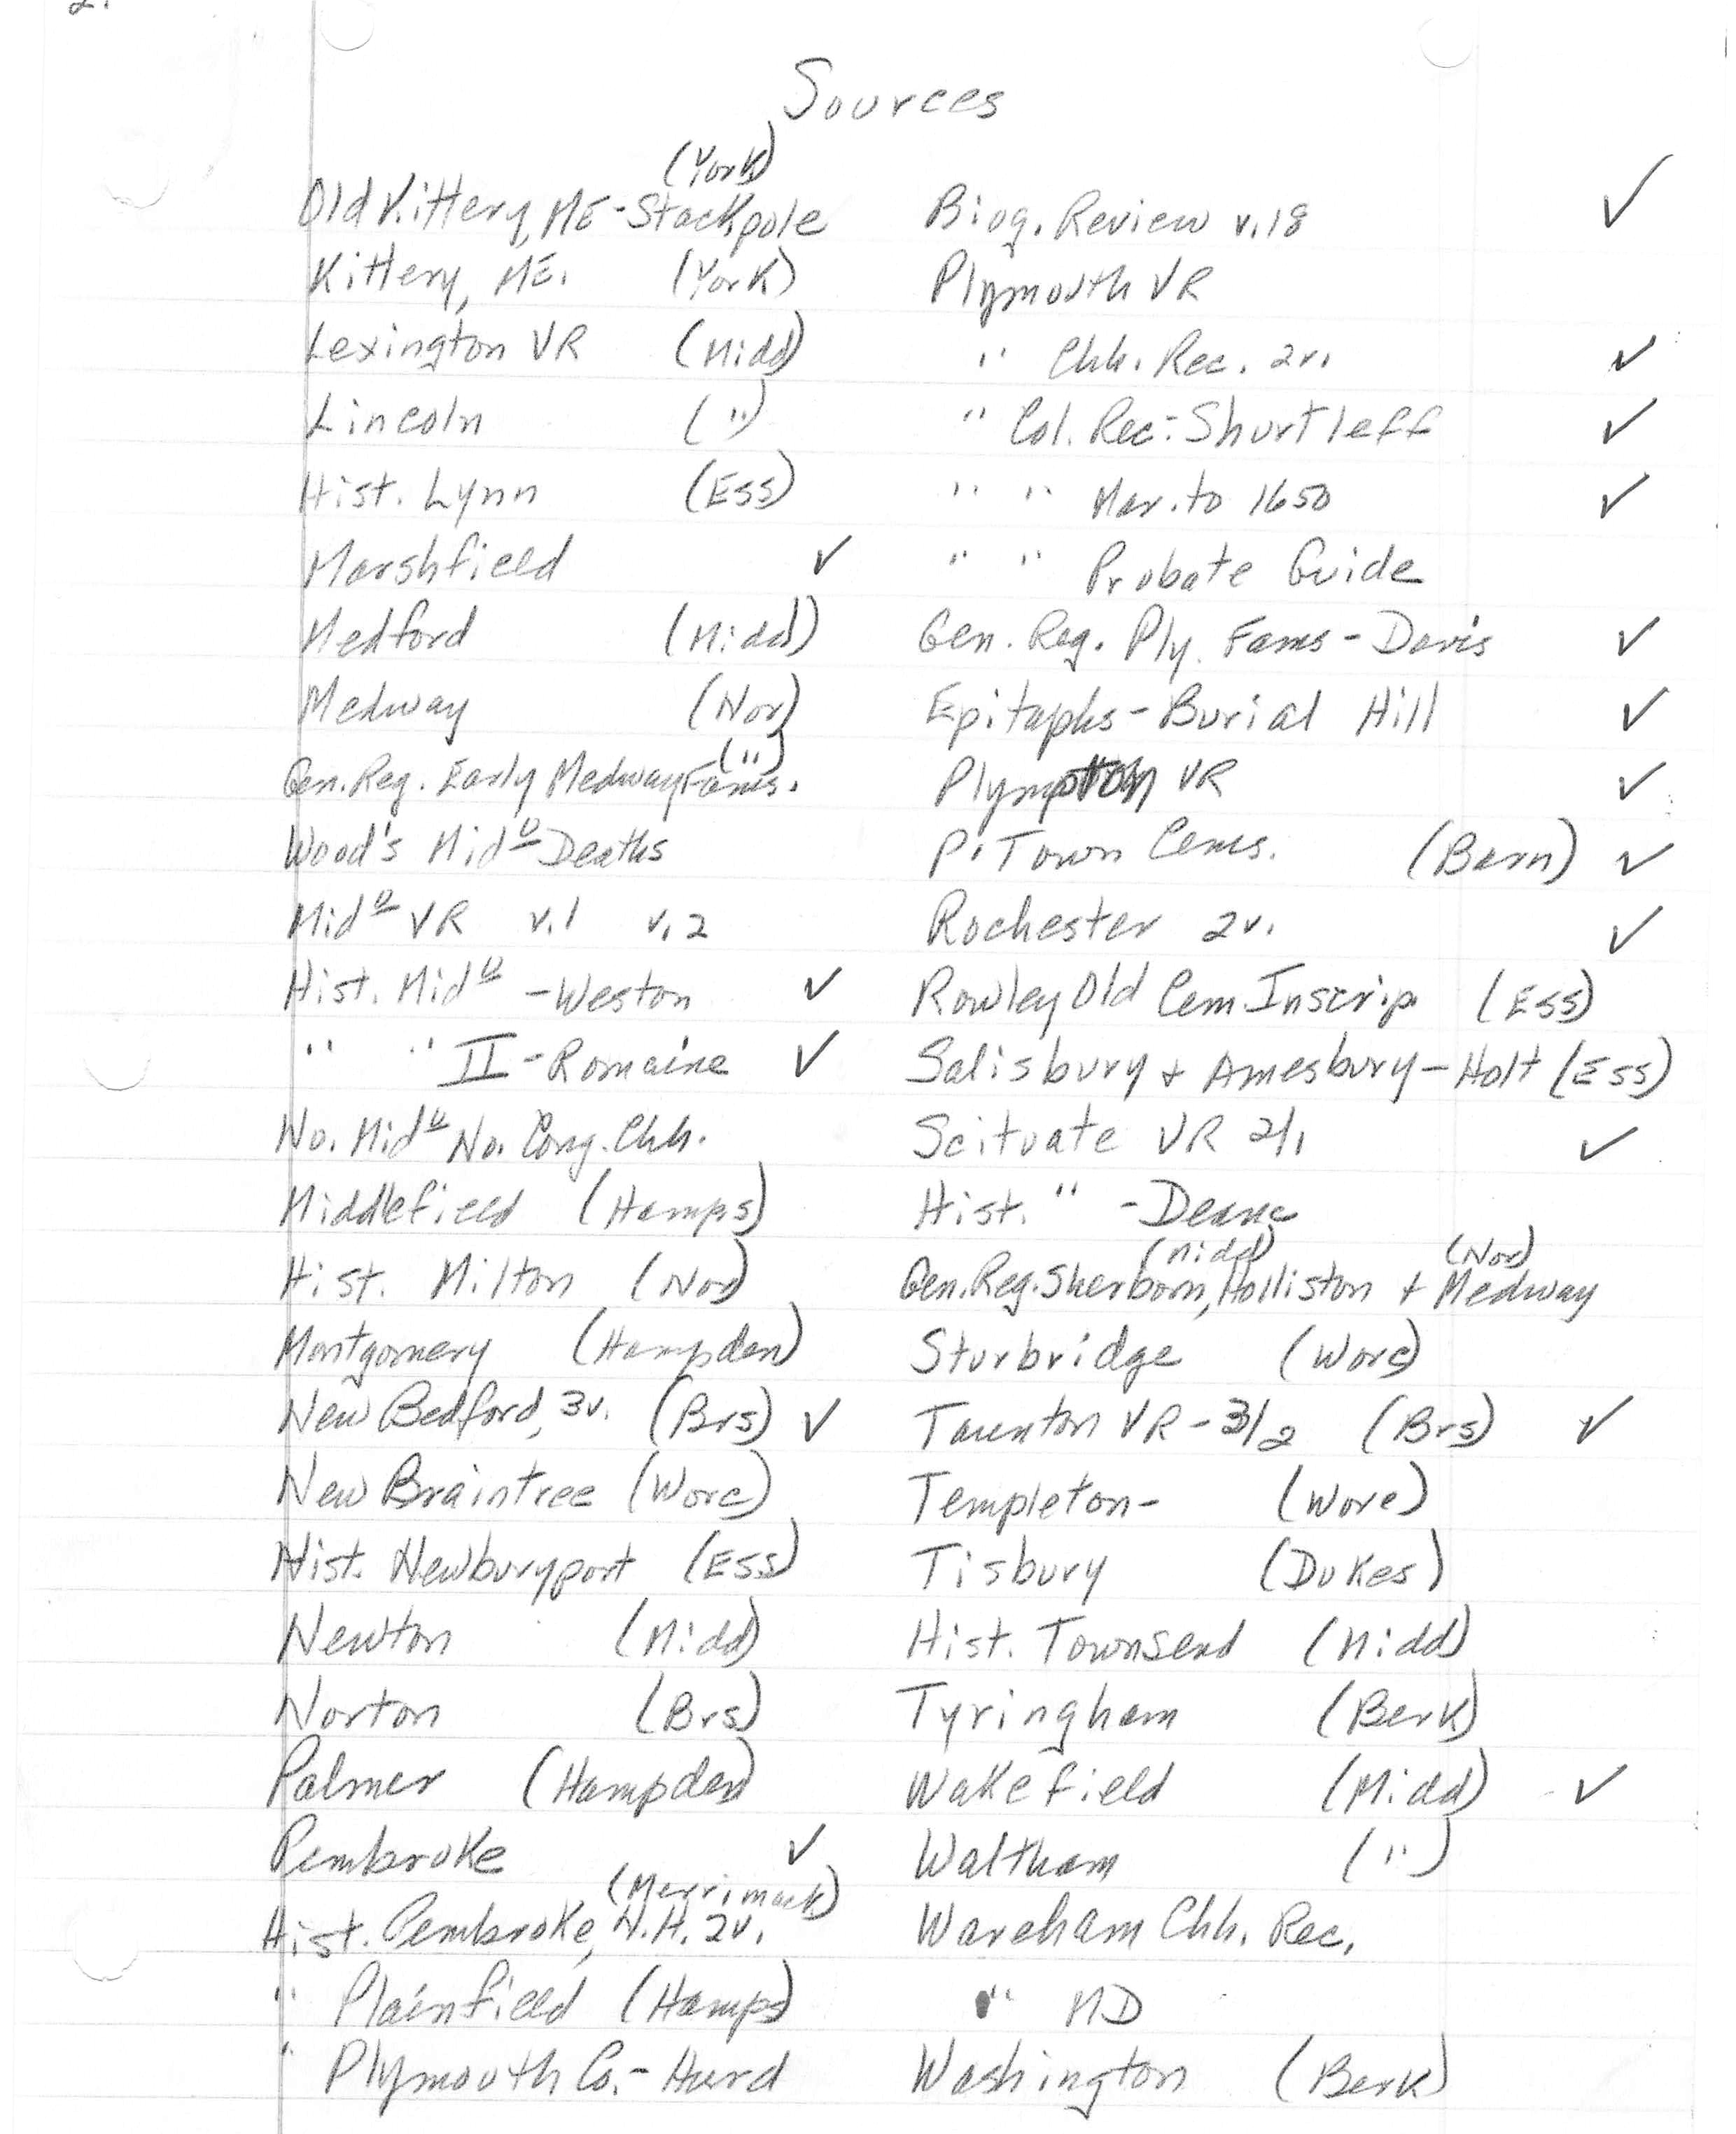 2.
Sources
(York)
Old Kittery, ME-Stackpole
Kittery, ME. (York)
Lexington VR (Midd)
Lincoln (")
Hist. Lynn (Ess)
Marshfield ✓
Medford (Midd)
Medway (Nor)
(")
Gen. Reg. Early Medway Fams.
Wood's Mid° Deaths
Mid° VR v.1 v.2
Hist. Mid° -Weston ✓
" " II-Romaine ✓
No. Mid° No. Cong. Chh.
Middlefield (Hamps)
Hist. Milton (Nor)
Montgomery (Hampden)
New Bedford, 3v. (Brs) ✓
New Braintree (Worc)
Hist. Newburyport (Ess)
Newton (Midd)
Norton (Brs)
Palmer (Hampden)
Pembroke ✓
(Merrimack)
Hist. Pembroke, N.H. 2v.
" Plainfield (Hamps)
" Plymouth Co.-Hurd
Biog. Review v.18 ✓
Plymouth VR
" Chh. Rec. 2v. ✓
" Col. Rec.-Shurtleff ✓
" " Mar. to 1650 ✓
" " Probate Guide
Gen. Reg. Ply. Fams-Davis ✓
Epitaphs-Burial Hill ✓
Plympton VR ✓
P'Town Cems. (Barn) ✓
Rochester 2v. ✓
Rowley Old Cem. Inscrip. (Ess)
Salisbury + Amesbury-Holt (Ess)
Scituate VR 2/1 ✓
Hist. " -Deane
(Midd) (Nor)
Gen. Reg. Sherborn, Holliston + Medway
Sturbridge (Worc)
Taunton VR-3/2 (Brs) ✓
Templeton- (Worc)
Tisbury (Dukes)
Hist. Townsend (Midd)
Tyringham (Berk)
Wakefield (Midd) ✓
Waltham (")
Wareham Chh. Rec.
" MD
Washington (Berk)